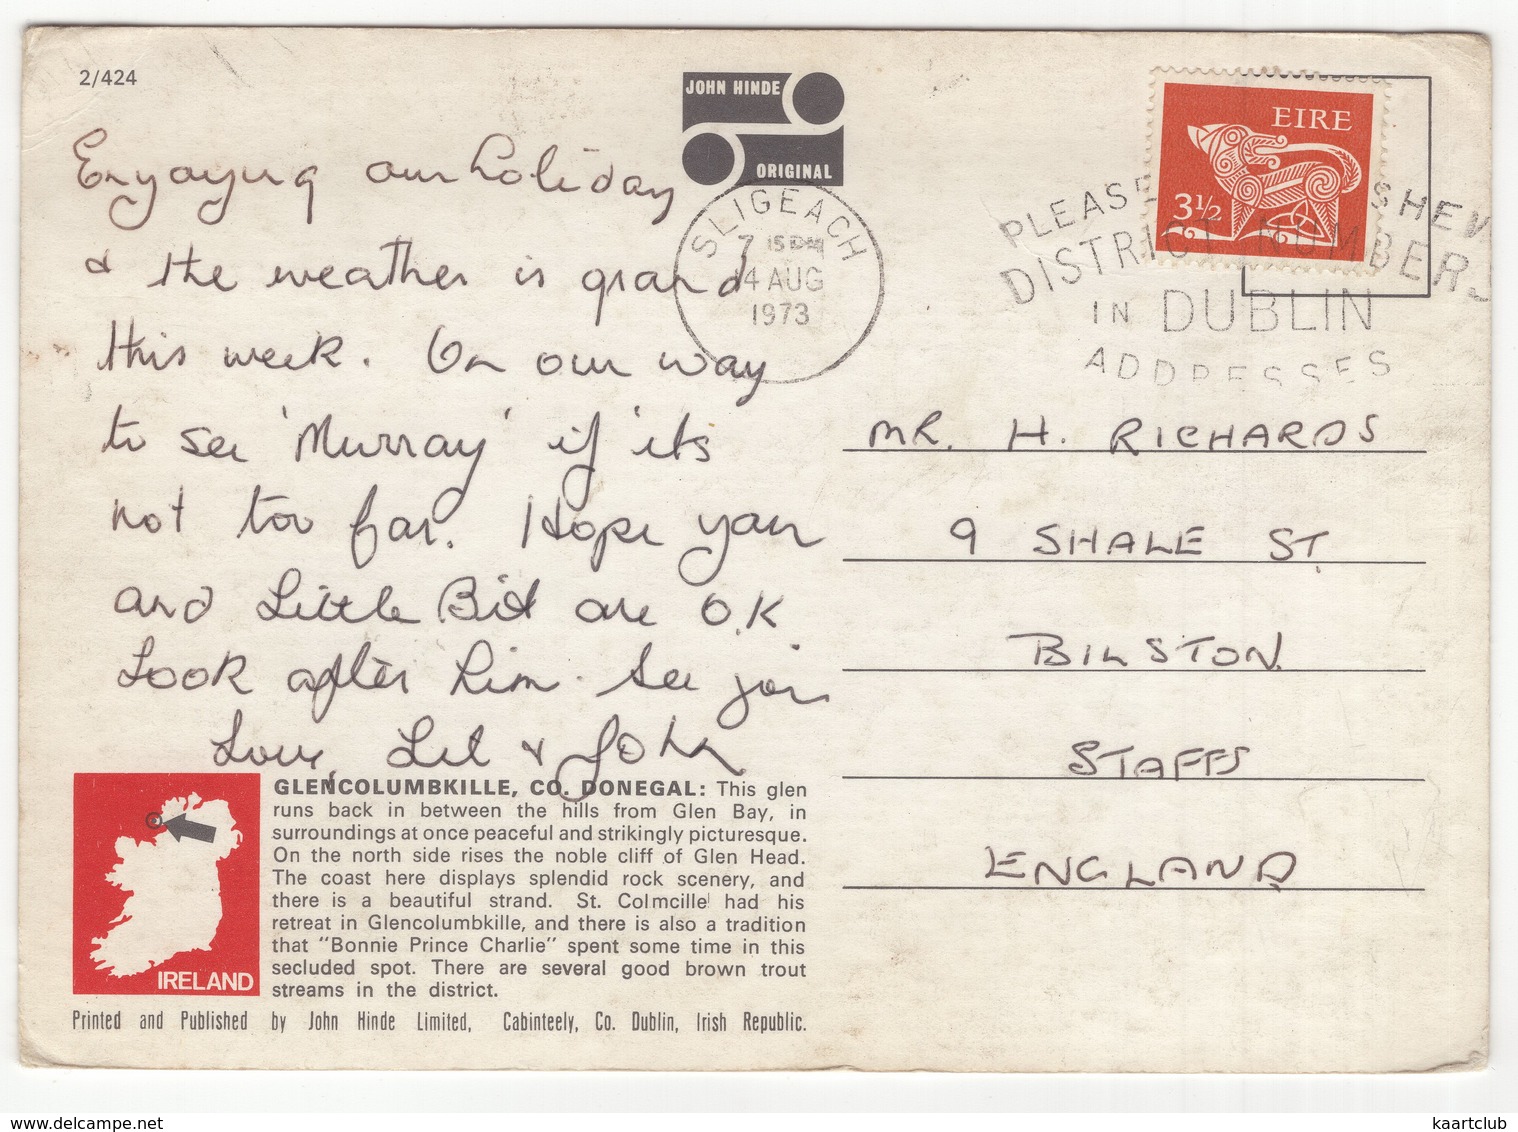 2/424
JOHN HINDE
ORIGINAL
EIRE
3½
SLIGEACH
4 AUG
1973
PLEASE SHEW
DISTRICT NUMBERS
IN DUBLIN
ADDRESSES
Enjoying our holiday
& the weather is grand
this week. On our way
to see 'Murray' if its
not too far. Hope you
and Little Bit are O.K.
Look after him. See you
Love, Lil & John
MR. H. RICHARDS
9 SHALE ST.
BILSTON
STAFFS
ENGLAND
IRELAND
GLENCOLUMBKILLE, CO. DONEGAL: This glen
runs back in between the hills from Glen Bay, in
surroundings at once peaceful and strikingly picturesque.
On the north side rises the noble cliff of Glen Head.
The coast here displays splendid rock scenery, and
there is a beautiful strand. St. Colmcille had his
retreat in Glencolumbkille, and there is also a tradition
that "Bonnie Prince Charlie" spent some time in this
secluded spot. There are several good brown trout
streams in the district.
Printed and Published by John Hinde Limited, Cabinteely, Co. Dublin, Irish Republic.
www.delcampe.net
kaartclub